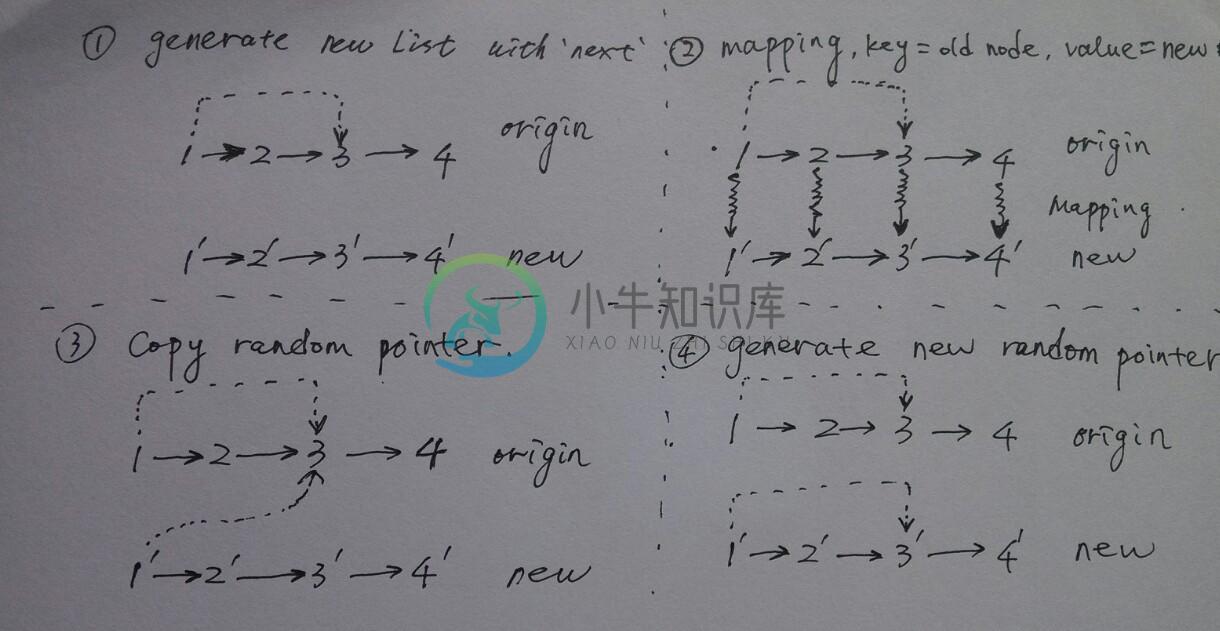 ① generate new List with 'next'
1 → 2 → 3 → 4 origin
1' → 2' → 3' → 4' new
② mapping, key = old node, value = new
1 → 2 → 3 → 4 origin
Mapping
1' → 2' → 3' → 4' new
③ Copy random pointer.
1 → 2 → 3 → 4 origin
1' → 2' → 3' → 4' new
④ generate new random pointer
1 → 2 → 3 → 4 origin
1' → 2' → 3' → 4' new
小牛知识库
XIAO NIU ZHI SHI KU